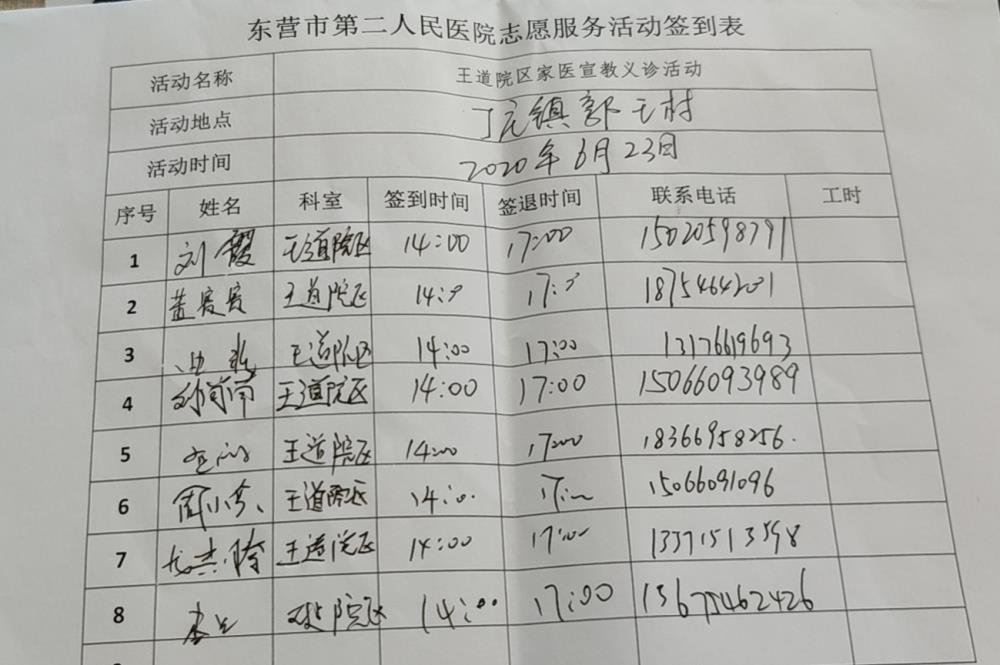 东营市第二人民医院志愿服务活动签到表
活动名称 王道院区家医宣教义诊活动
活动地点 丁庄镇郭王村
活动时间 2020年6月23日
序号 姓名 科室 签到时间 签退时间 联系电话 工时
1 刘霞 王道院区 14:00 17:00 15020598791
2 盖霞霞 王道院区 14:0 17:0 18754642031
3 王道院区 14:00 17:00 13176619693
4 孙南南 王道院区 14:00 17:00 15066093989
5 王道院区 14:00 17:00 18366958256.
6 周小芳 王道院区 14:0. 17:00 15066091096
7 王道院区 14:00 17:00 13371513598
8 院区 14:00 17:00 15675462426